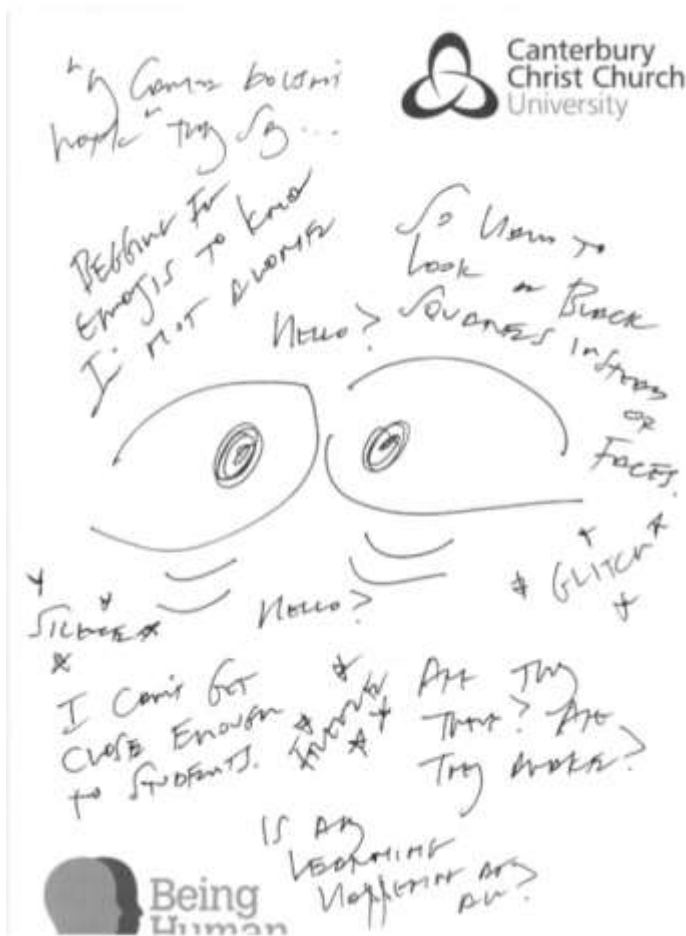 Canterbury
Christ Church
University
"My camera doesn't
work" they say...
BEGGING FOR
EMOJIS TO KNOW
I'M NOT ALONE
SO HARD TO
LOOK AT BLACK
SQUARES INSTEAD
OF
FACES.
HELLO?
*GLITCH*
*SILENCE*
HELLO?
I CAN'T GET
CLOSE ENOUGH
TO STUDENTS.
ARE THEY
THERE? ARE
THEY AWAKE?
IS ANY
LEARNING
HAPPENING AT
ALL?
Being
Human